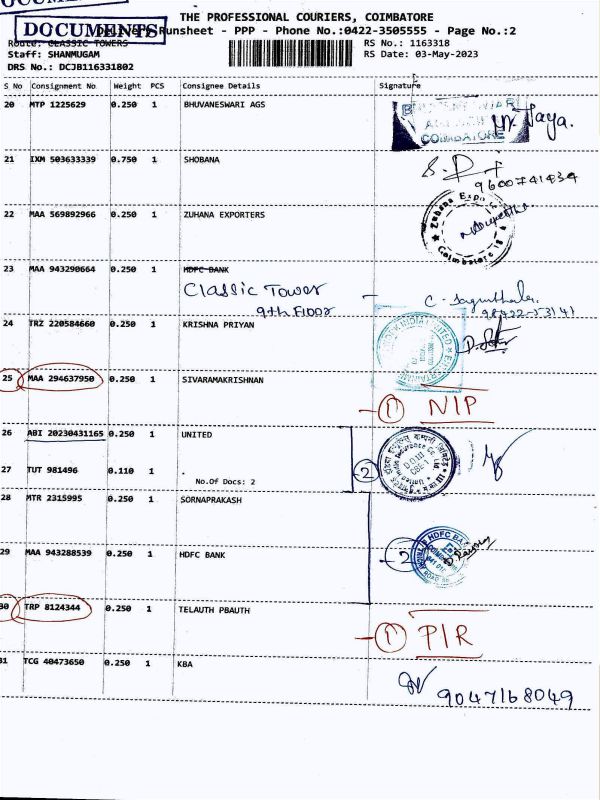 DOCUMENTS
THE PROFESSIONAL COURIERS, COIMBATORE
Delivery Runsheet - PPP - Phone No.:0422-3505555 - Page No.:2
Route: CLASSIC TOWERS
RS No.: 1163318
Staff: SHANMUGAM
RS Date: 03-May-2023
DRS No.: DCJB116331802
S No Consignment No. Weight PCS Consignee Details Signature
20 MTP 1225629 0.250 1 BHUVANESWARI AGS
COIMBATORE
Jaya.
21 IXM 503633339 0.750 1 SHOBANA
9600741434
22 MAA 569892966 0.250 1 ZUHANA EXPORTERS
Zuhana Expo
Coimbatore
23 MAA 943290664 0.250 1 HDFC BANK
Classic Tower
9th Floor
24 TRZ 220584660 0.250 1 KRISHNA PRIYAN
25 MAA 294637950 0.250 1 SIVARAMAKRISHNAN
- 1 NIP
26 ABI 20230431165 0.250 1 UNITED
2
27 TUT 981496 0.110 1 .
No.Of Docs: 2
28 MTR 2315995 0.250 1 SORNAPRAKASH
29 MAA 943288539 0.250 1 HDFC BANK
2
HDFC BA
30 TRP 8124344 0.250 1 TELAUTH PBAUTH
- 1 P/R
31 TCG 40473650 0.250 1 KBA
9047168049